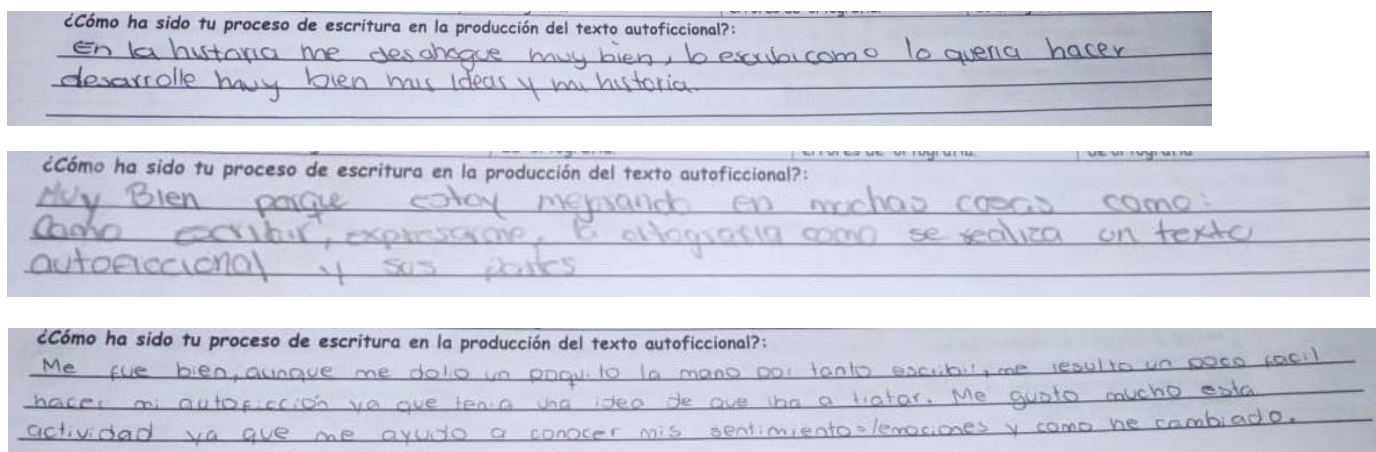 ¿Cómo ha sido tu proceso de escritura en la producción del texto autoficcional?:
En la historia me desahogue muy bien, lo escribi como lo queria hacer
desarrolle muy bien mis ideas y mi historia.
¿Cómo ha sido tu proceso de escritura en la producción del texto autoficcional?:
Muy Bien porque estoy mejorando en muchas cosas como:
Como escribir, expresarme, la ortografia como se realiza un texto
autoficcional y sus partes
¿Cómo ha sido tu proceso de escritura en la producción del texto autoficcional?:
Me fue bien, aunque me dolio un poquito la mano por tanto escribir, me resulto un poco facil
hacer mi autoficción ya que tenia una idea de que iba a tratar. Me gusto mucho esta
actividad ya que me ayudo a conocer mis sentimientos/emociones y como he cambiado.